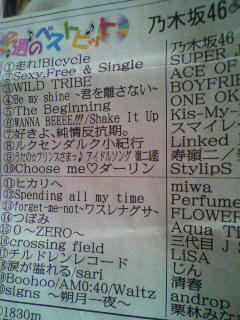 今週のベストヒット
①走れ!Bicycle
②Sexy,Free & Single
③WILD TRIBE
④Be my shine ~君を離さない~
⑤The Beginning
⑥WANNA BEEEE!!!/Shake It Up
⑦好きよ、純情反抗期。
⑧ルクセンダルク小紀行
⑨うたの☆プリンスさまっ♪アイドルソング 嶺二藍
⑩Choose me♡ダーリン
⑪ヒカリへ
⑫Spending all my time
⑬forget-me-not~ワスレナグサ~
⑭つぼみ
⑮0~ZERO~
⑯crossing field
⑰チルドレンレコード
⑱涙が溢れる/sari
⑲Boohoo/AM0:40/Waltz
⑳signs ~朔月一夜~
乃木坂46
乃木坂46
SUPER
ACE OF
BOYFRIE
ONE OK
Kis-My-
スマイレ
Linked
寿嶺二
StylipS
miwa
Perfume
FLOWER
Aqua T
三代目 J
LiSA
じん
清春
androp
栗林みな
1830m